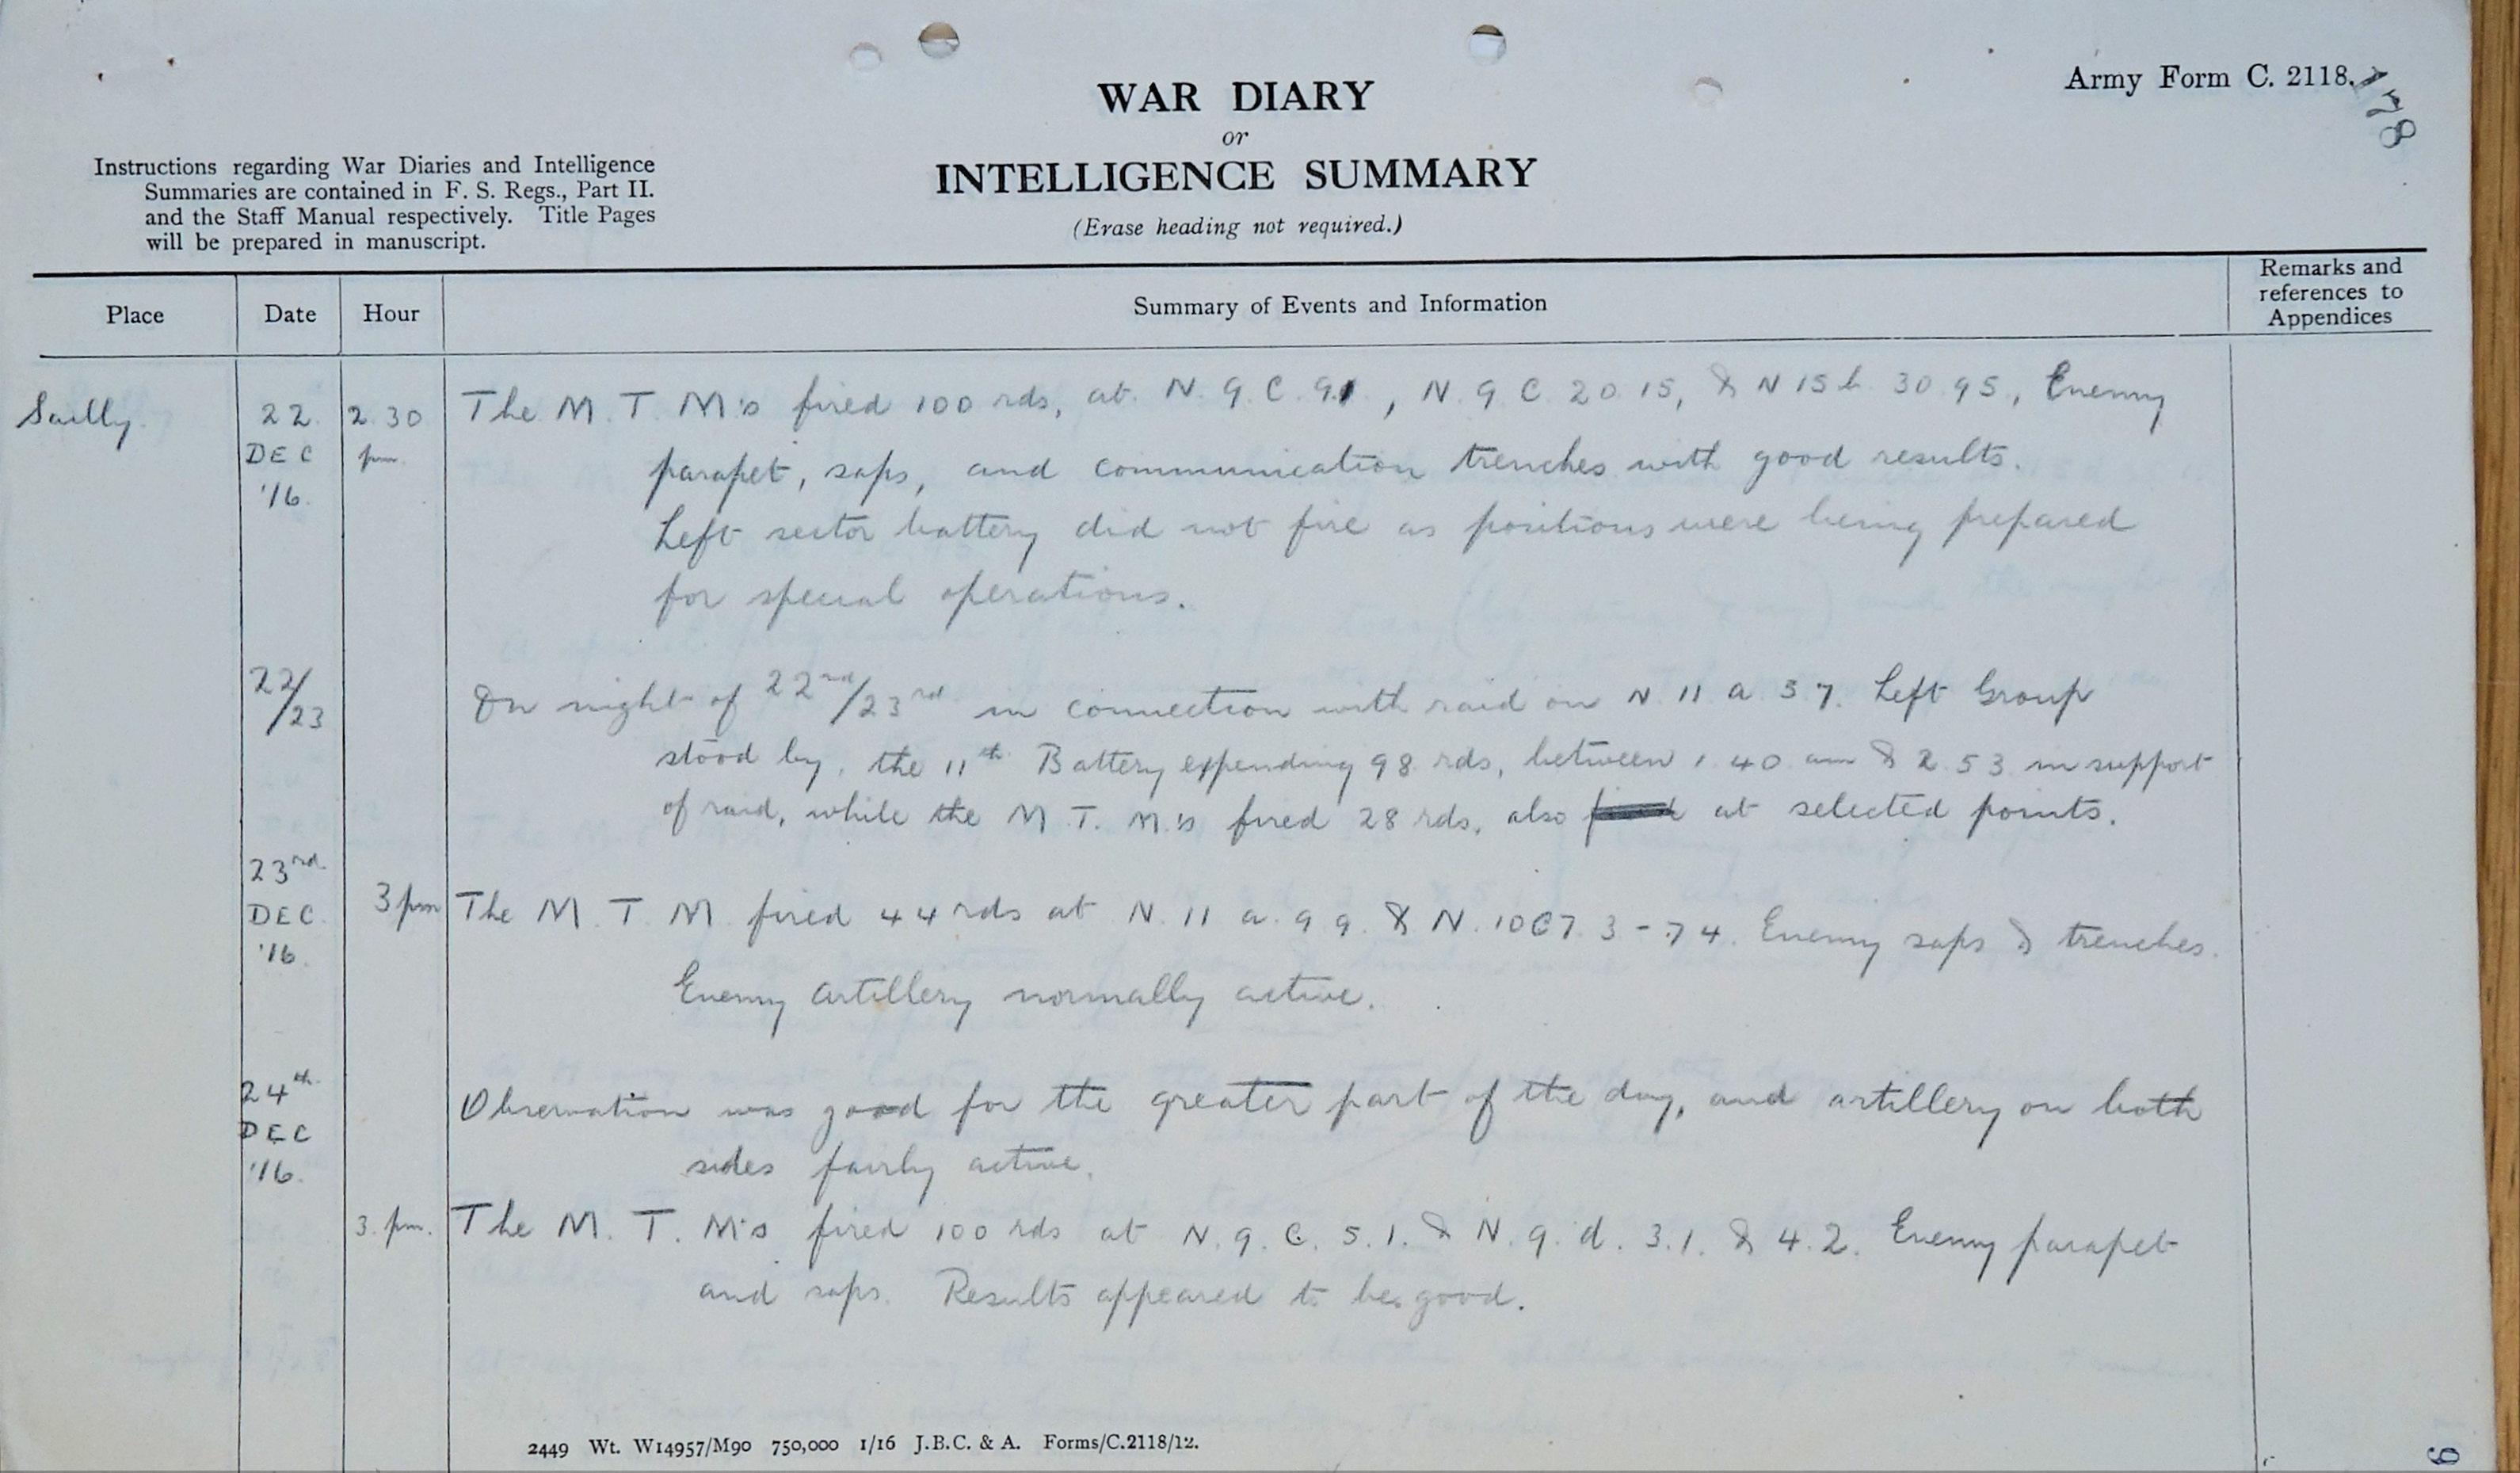 Army Form C. 2118.
178
WAR DIARY
or
INTELLIGENCE SUMMARY
(Erase heading not required.)
Instructions regarding War Diaries and Intelligence
Summaries are contained in F. S. Regs., Part II.
and the Staff Manual respectively. Title Pages
will be prepared in manuscript.
Place Date Hour Summary of Events and Information Remarks and references to Appendices
Sailly. 22. DEC '16. 2.30 pm. The M. T. M's fired 100 rds, at N. 9. C. 91, N. 9 C 20 15, & N 15 b 30 95, Enemy
parapet, saps, and communication trenches with good results.
Left sector battery did not fire as positions were being prepared
for special operations.
22/23 On night of 22nd/23rd in connection with raid on N 11 a 57. Left Group
stood by, the 11th Battery expending 98 rds, between 1.40 am & 2 53 in support
of raid, while the M. T. M's fired 28 rds, also at selected points.
23rd DEC. '16. 3 pm The M. T. M. fired 44 rds at N. 11 a. 9 9. & N. 10 C 7. 3 - .74. Enemy saps & trenches.
Enemy artillery normally active.
24th DEC '16. Observation was good for the greater part of the day, and artillery on both
sides fairly active.
3. pm. The M. T. M's fired 100 rds at N. 9. C. 5.1. & N. 9. d. 3.1. & 4.2. Enemy parapet
and saps. Results appeared to be good.
2449 Wt. W14957/M90 750,000 1/16 J.B.C. & A. Forms/C.2118/12.